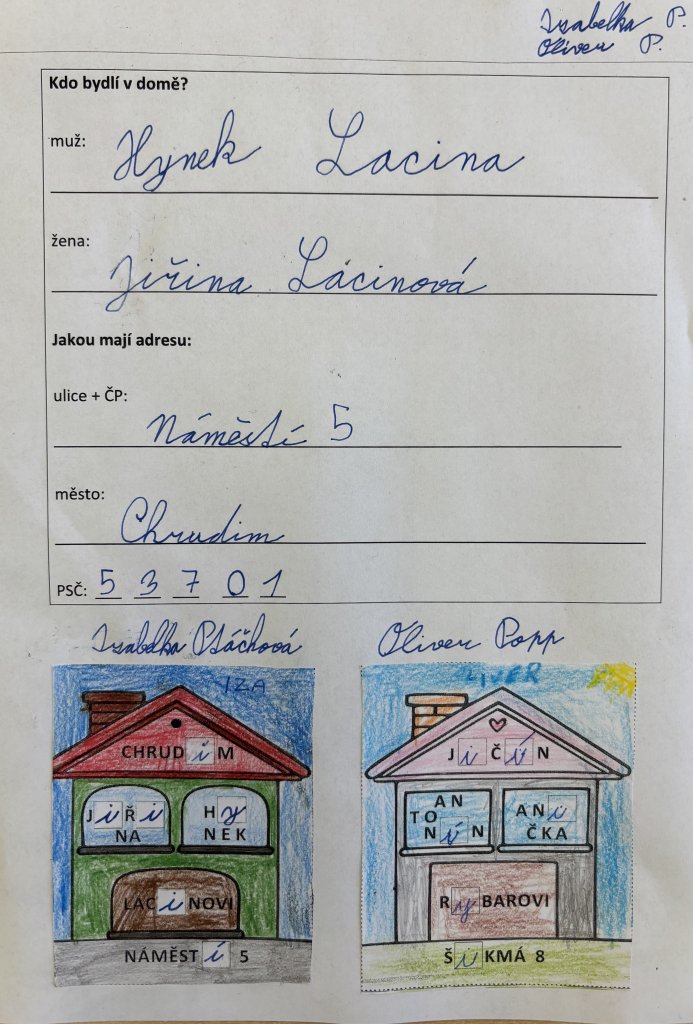 Izabelka P.
Oliver P.
Kdo bydlí v domě?
muž: Hynek Lacina
žena: Jiřina Lacinová
Jakou mají adresu:
ulice + ČP:
Náměstí 5
město:
Chrudim
PSČ: 5 3 7 0 1
Izabelka Ptáčková
Oliver Popp
IZA
CHRUDiM
JiŘi
NA
Hy
NEK
LACiNOVI
NÁMĚSTí 5
LIVER
JiČíN
AN
TO
NíN
ANi
ČKA
RyBAROVI
ŠiKMÁ 8